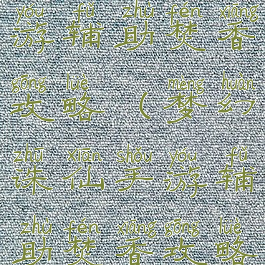 yóu fǔ zhù fén xiāng
游辅助焚香
gōng lüè mèng huàn
攻略(梦幻
zhū xiān shǒu yóu fǔ
诛仙手游辅
zhù fén xiāng gōng lüè
助焚香攻略